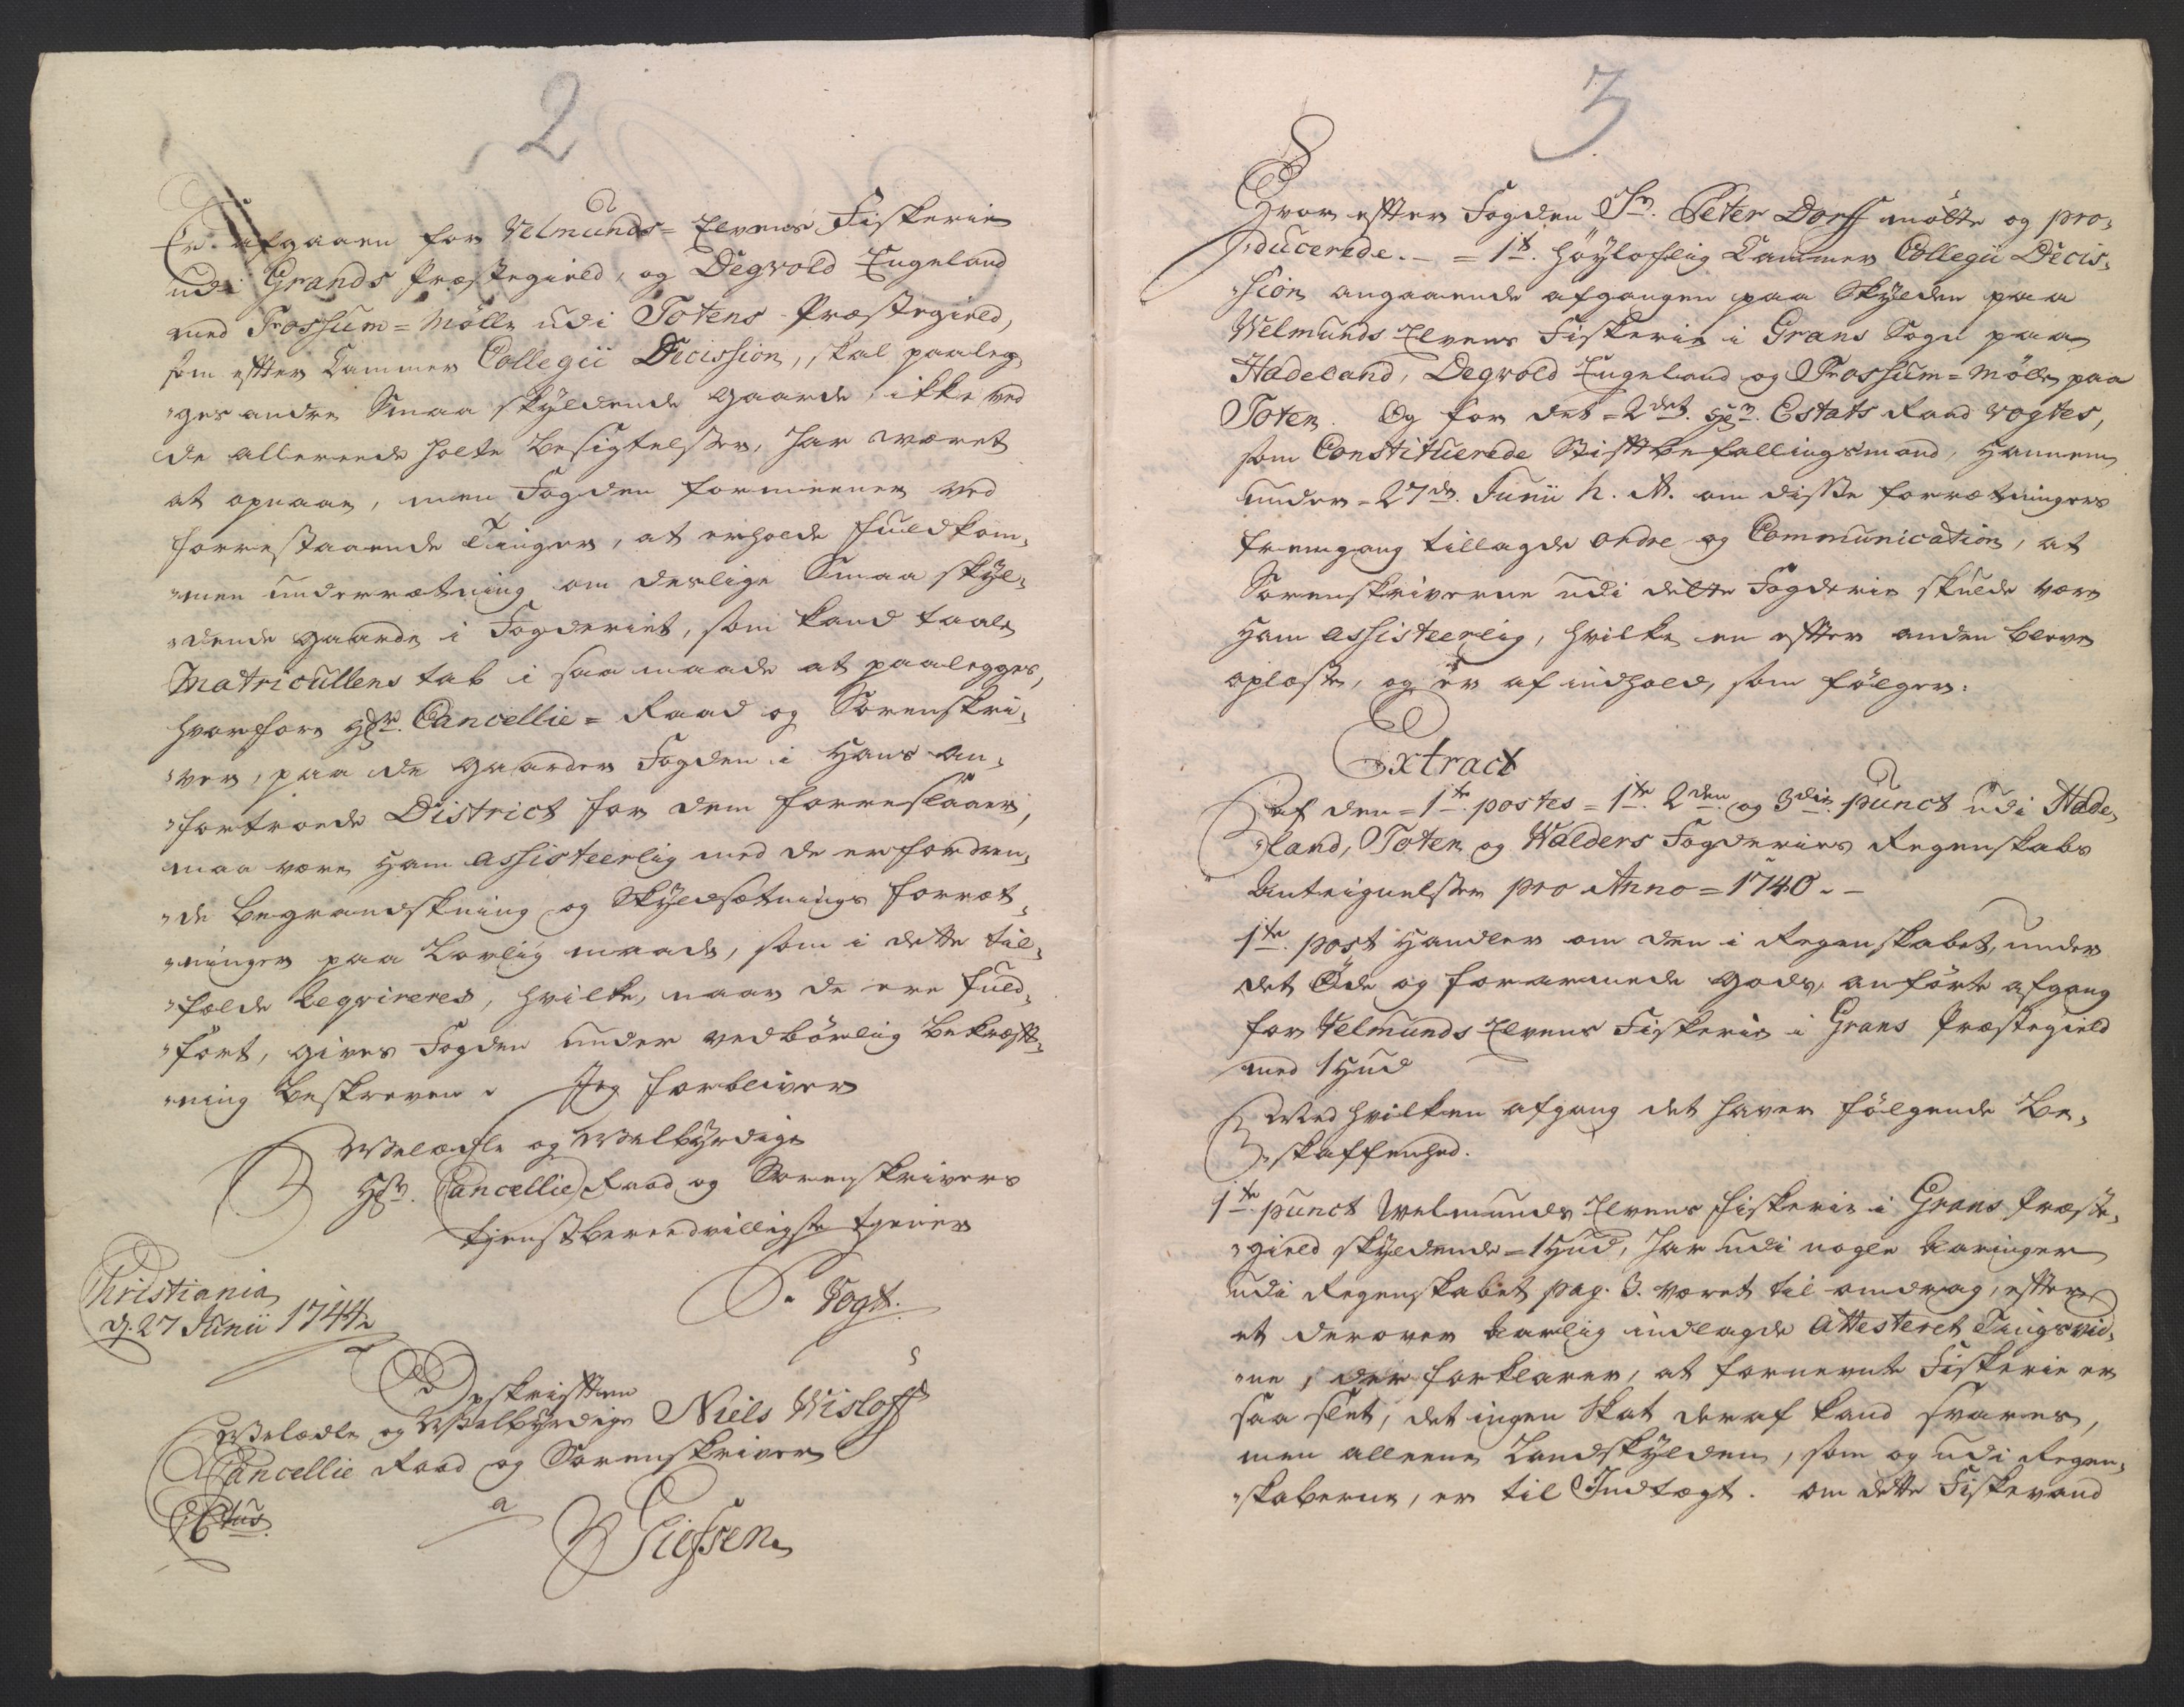 2
Er afgaaen for Velmunds= Elvens Fiskerie
udi Grands Præstegield, og Degvold Engeland
med Fossum=Mölle udi Totens Præstegield,
som efter Cammer Collegii Decission, skal paaleg„
„ges andre Smaa skyldende gaarde, ikke ved
de allereede holte Besigtelsser, har været
at opnaae, men Fogden formeener ved
forrestaaende Tinger, at erholde fuldkom„
„men underrætning om deslige Smaa skyl„
„dende gaarde i Fogderiet, som kand taale
Matricullens tab i saa maade at paalegges,
hvorfore Hr. Cancellie= Raad og Sorenskri„
„ver, paa de gaarder Fogden i Hans an„
„fortroede District for dem forreslaaer,
maa være Ham assisteerlig med de erfordren„
„de Begrandskning og Skyldsætnings forræt„
„ninger paa Lovlig maade, som i dette til„
„fælde Reqvireres, hvilke, naar de ere fuld„
„fört, gives Fogden under vedbörlig Bekræft„
„ning Beskreven. Jeg forbliver
Welædle og Welbyrdige
Hr. Cancellie Raad og Sorenskrivers
tienstbereedvilligste tiener
Vogt.
Christiania
d. 27 Junii 1744
Udskriftten
Welædle og Welbyrdige Niels Wisloff
Cancellie Raad og Sorenskriver
a
3
Hvor efter Fogden Sr. Peter Dorff mötte og pro„
„ducerede. – = 1t. höylovlig Cammer Collegii Decis„
„sion angaaende afgangen paa Skylden paa
Welmunds Elvens Fiskerie i Grans Sogn paa
Hadeland, Degvold Engeland og Fossum=Mölle paa
Toten. Og for det = 2det. Hr. Estats Raad Vogtes,
som Constituerede Stiftbefallingsmand, Hannem
under = 27de. Junii h. A. om disse forrætningers
fremgang tillagde ordre og Communication, at
Sorenskriverne udi dette Fogderie skulde være
Ham assisteerlig, hvilke en efter anden bleve
oplæste, og er af indhold, som fölger:
Extract
af den = 1te. postes = 1te. 2den og 3die. punct udi Hade„
„land, Toten og Walders Fogderies Regenskabs
Anteignelsser pro Anno = 1740. –
1te. post Handler om den i Regenskabet, under
det Öde og forarmede gods, anförte afgang
for Velmunds Elvens Fiskerie i Grans Præstegield
med 1 Hud
Med hvilken afgang det haver fölgende Be„
„skaffenhed.
1te. punct Welmunds Elvens fiskerie i Grans Præste„
„gield skyldende = 1 Hud, har udi nogle Aaringer
udi Regenskabet pag. 3. været til omdrag, efter
et derover Aarlig indlagde Attesteret Tingsvid„
„ne, der forklarer, at fornevnte Fiskerie er
saa slet, det ingen Skat deraf kand svares,
men alleene Landskylden, som og udi Regen„
„skaberne, er til Indtægt. om dette Fiskevand